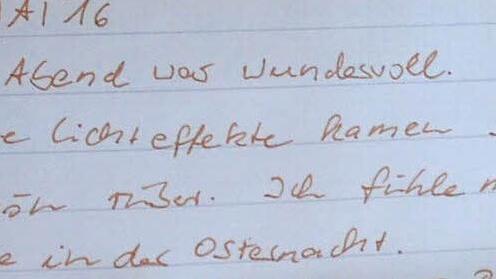 AI 16
Abend war wundervoll.
e Lichteffekte kamen
rüber. Ich fühle m
e in der Osternacht.